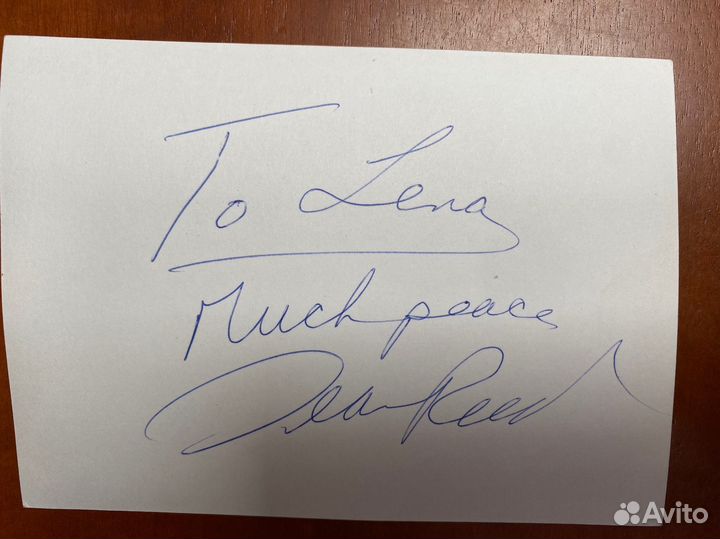 To Lena
Much peace
Dean Reed
Avito